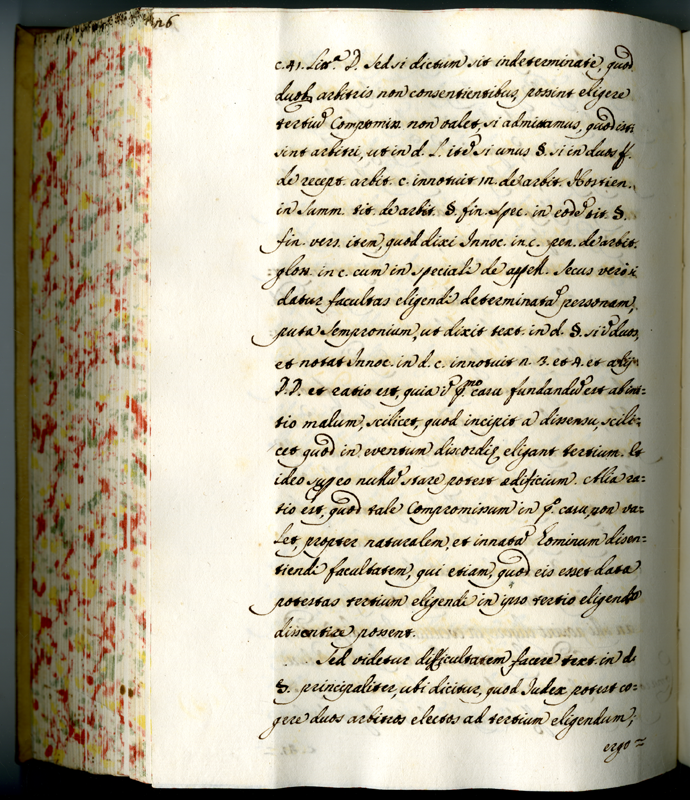 c. 41. Litt.ª D. Sed si dictum sit indeterminatè, quod
duob. arbitris non consentientibus, possint eligere
tertiũ Compromiss. non valet, si admittamus, quod isti
sint arbitri, ut in d. l. itẽ si unus §. si in duos ff.
de recept. arbit. c. innotuit in. de arbit. Hostien.
in summ. tit. de arbit. §. fin. Spec. in eodẽ tit. §.
fin. vers. item, quod dixi Innoc. in c. pen. de arbit.
gloss. in c. cum in speciali de appell. Secus verò si
datur facultas eligendi determinatã personam,
puta Sempronium, ut dixit text. in d. §. si ĩ duos,
et notat Innoc. in d. c. innotuit n. 3. et 4. et alij
DD. et ratio est, quia ĩ p.mo casu fundandũ est ab ini=
tio malum, scilicet, quod incipit a dissensu, scili=
cet quod in eventum discordię eligant tertium. Et
ideo supeo nullũ stare potest ædificium. Alia ra=
tio est, quod tale Compromissum in p.º casu, non va=
let, propter naturalem, et innatã hominum dissen=
tiendi facultatem, qui etiam, quod eis esset data
potestas tertium eligendi in ipso tertio eligendo
dissentire possent.
Sed videtur difficultatem facere text. in d.
§. principaliter, ubi dicitur, quod Iudex potest co=
gere duos arbitros electos ad tertium eligendum,
ergo =